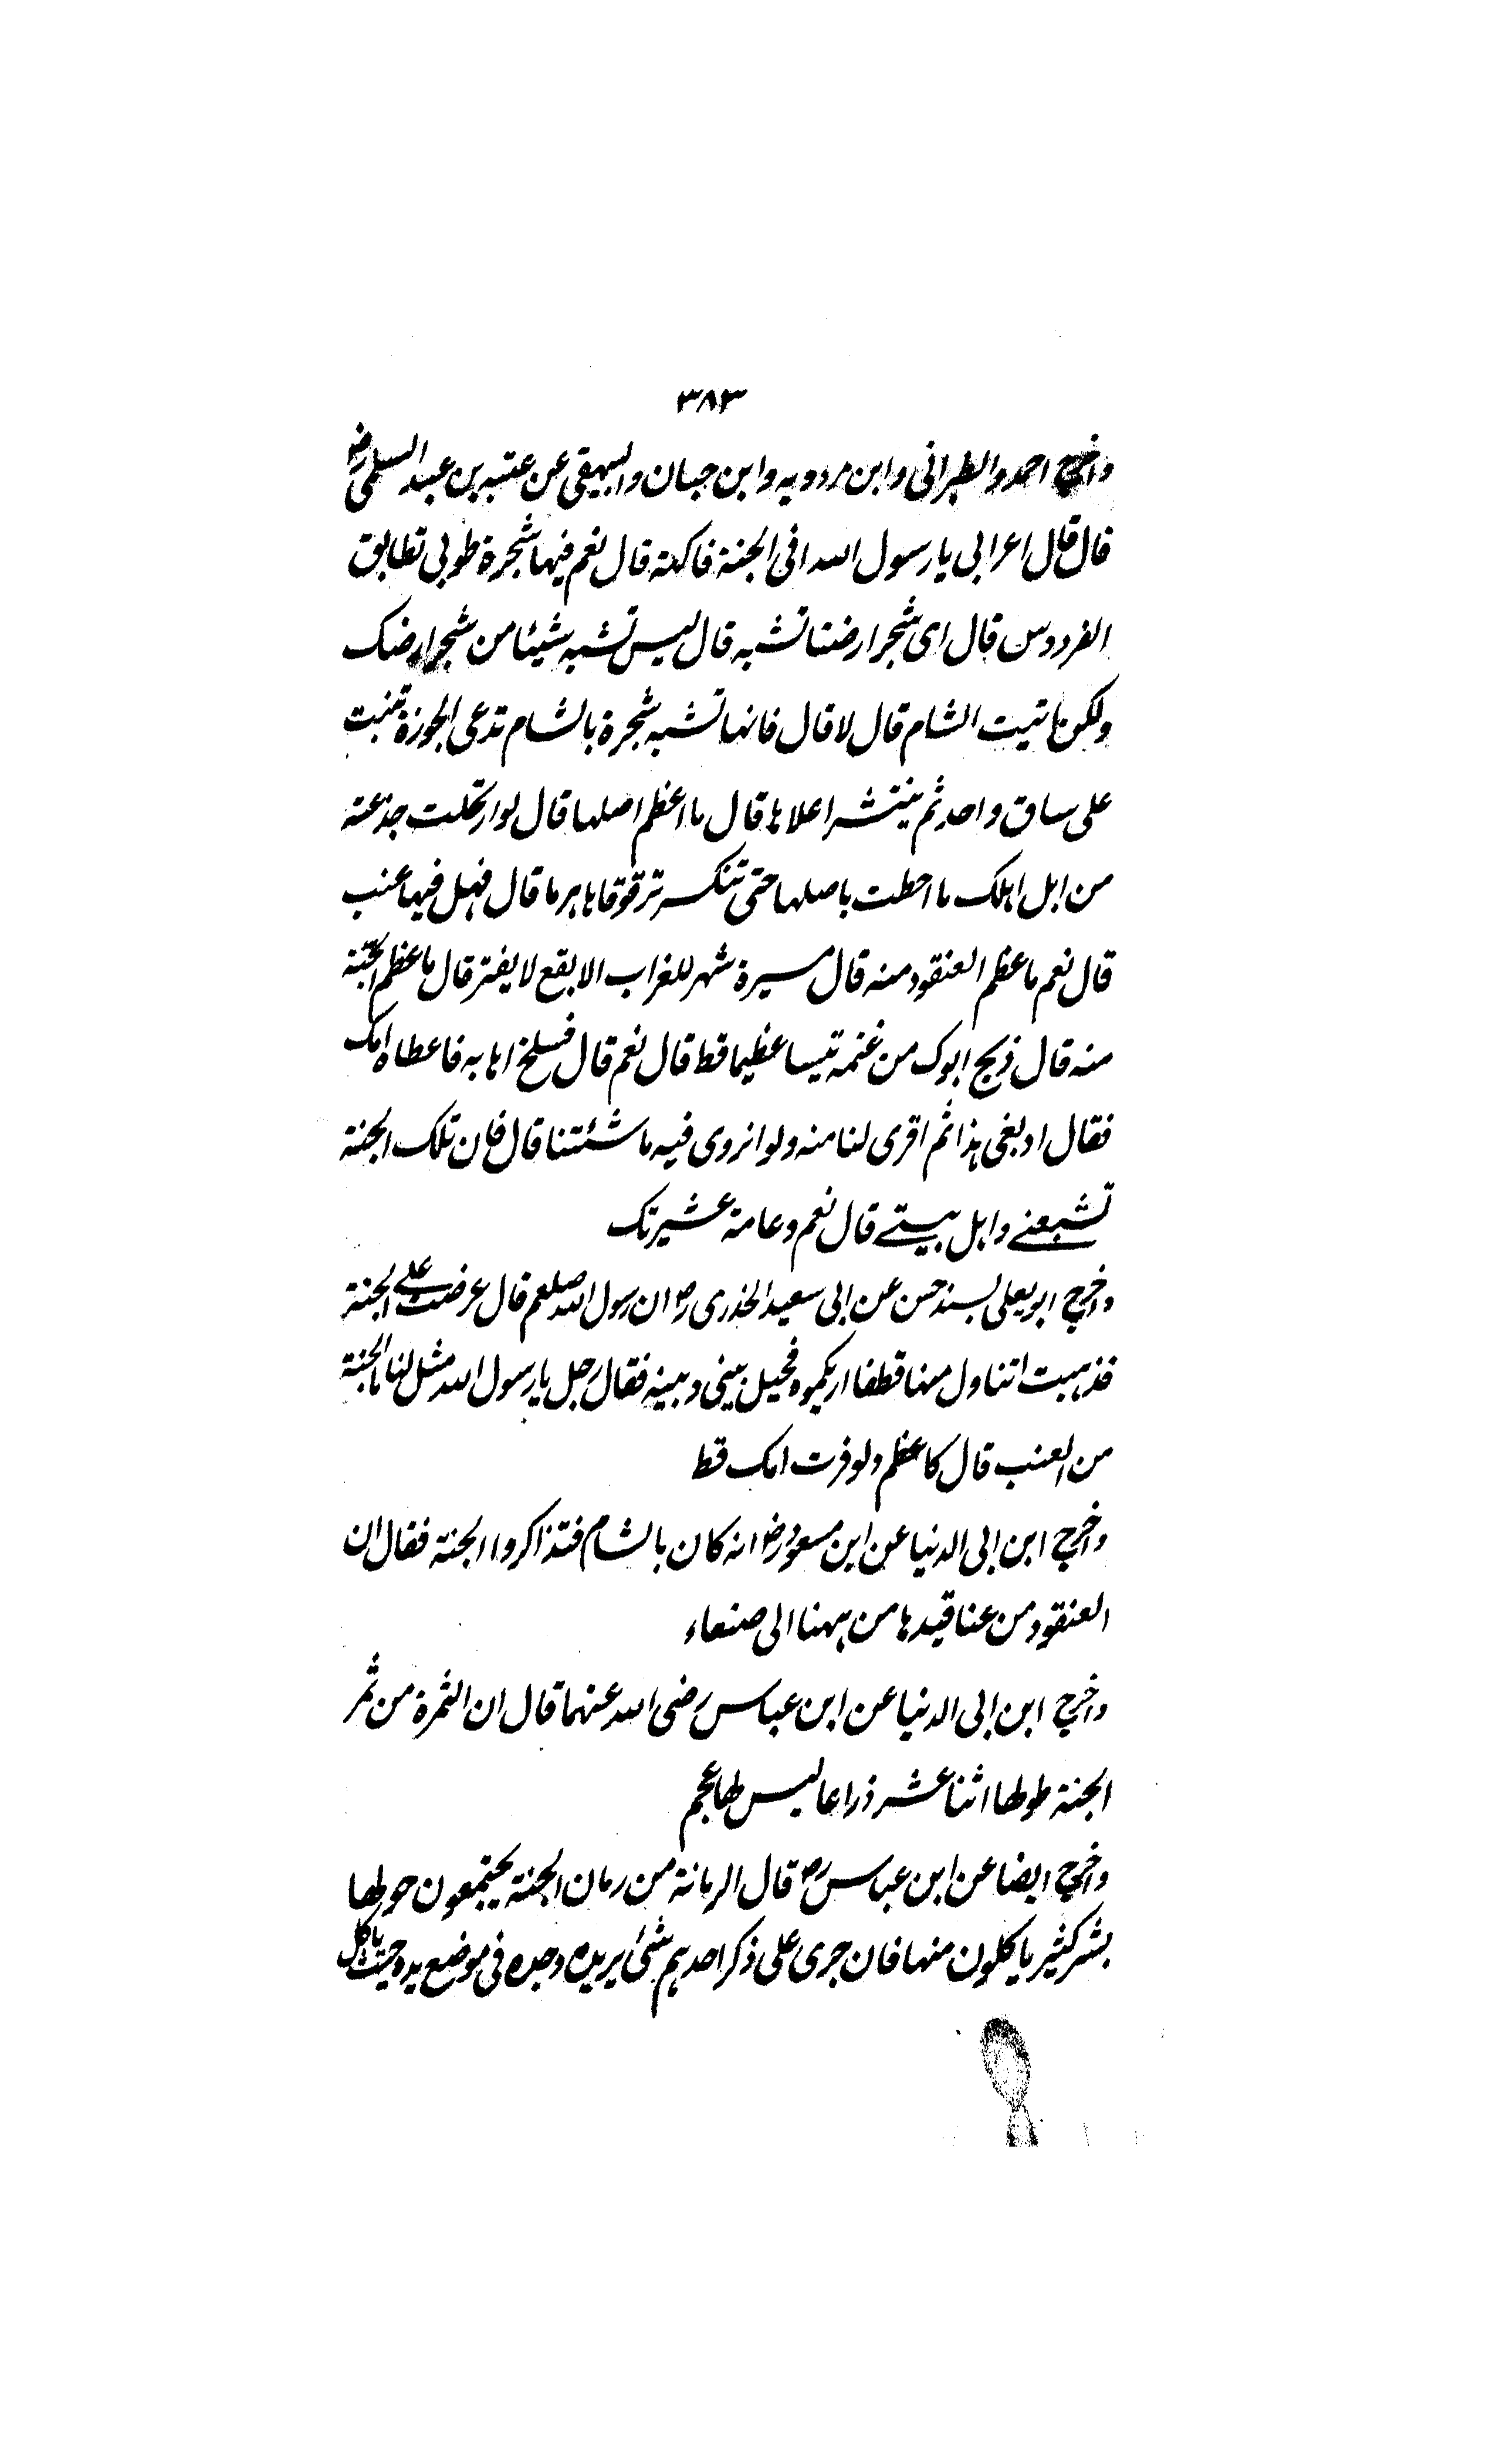 ٣٨٣
واخرج احمد والطبرانی وابن مردویه وابن حبان والبیهقی عن عتبه بن عبد السلمی رض
قال قال اعرابی یا رسول الله افی الجنة فاکهة قال نعم فیها شجرة طوبی تطابق
الفردوس قال ای شجر ارضنا تشبه قال لیس تشبه شیئا من شجر ارضک
ولکن اتیت الشام قال لا قال فانها تشبه شجرة بالشام تدعی الجوزة تنبت
علی ساق واحد ثم ینتشر اعلاها قال ما اعظم اصلها قال لو ارتحلت جذعة
من ابل اهلک ما احطت باصلها حتی تنکسر ترقوتاها هرما قال فهل فیها عنب
قال نعم ما عظم العنقود منه قال مسیرة شهر للغراب الابقع لا یفتر قال ما عظم الحبة
منه قال ذبح ابوک من غنمه تیسا عظیما قط قال نعم قال فسلخ اهابه فاعطاه امک
فقال ادبغی هذا ثم افری لنا منه دلوا نروی فیه ماشئتنا قال فان تلک الجنة
تشبعنے واهل بیتے قال نعم وعامة عشیرتک
واخرج ابو یعلی بسند حسن عن ابی سعید الخدری رض ان رسول الله صلعم قال عرضت علی الجنة
فذهبت اتناول منها قطفا اریکموه فحیل بینی وبینه فقال رجل یا رسول الله مثل لنا ما الجنة
من العنب قال کاعظم دلو فرت امک قط
واخرج ابن ابی الدنیا عن ابن مسعود رض انه کان بالشام فتذاکروا الجنة فقال ان
العنقود من عناقیدها من ههنا الی صنعاء
واخرج ابن ابی الدنیا عن ابن عباس رضی الله عنهما قال ان الثمرة من ثمر
الجنة طولها اثنا عشر ذراعا لیس لها عجم
واخرج ایضا عن ابن عباس رض قال الرمانة من رمان الجنة یجتمعون حولها
بشر کثیر یاکلون منها فان جری علی ذکر احدهم شئ یریده وجده فی موضع یده حیث یاکل